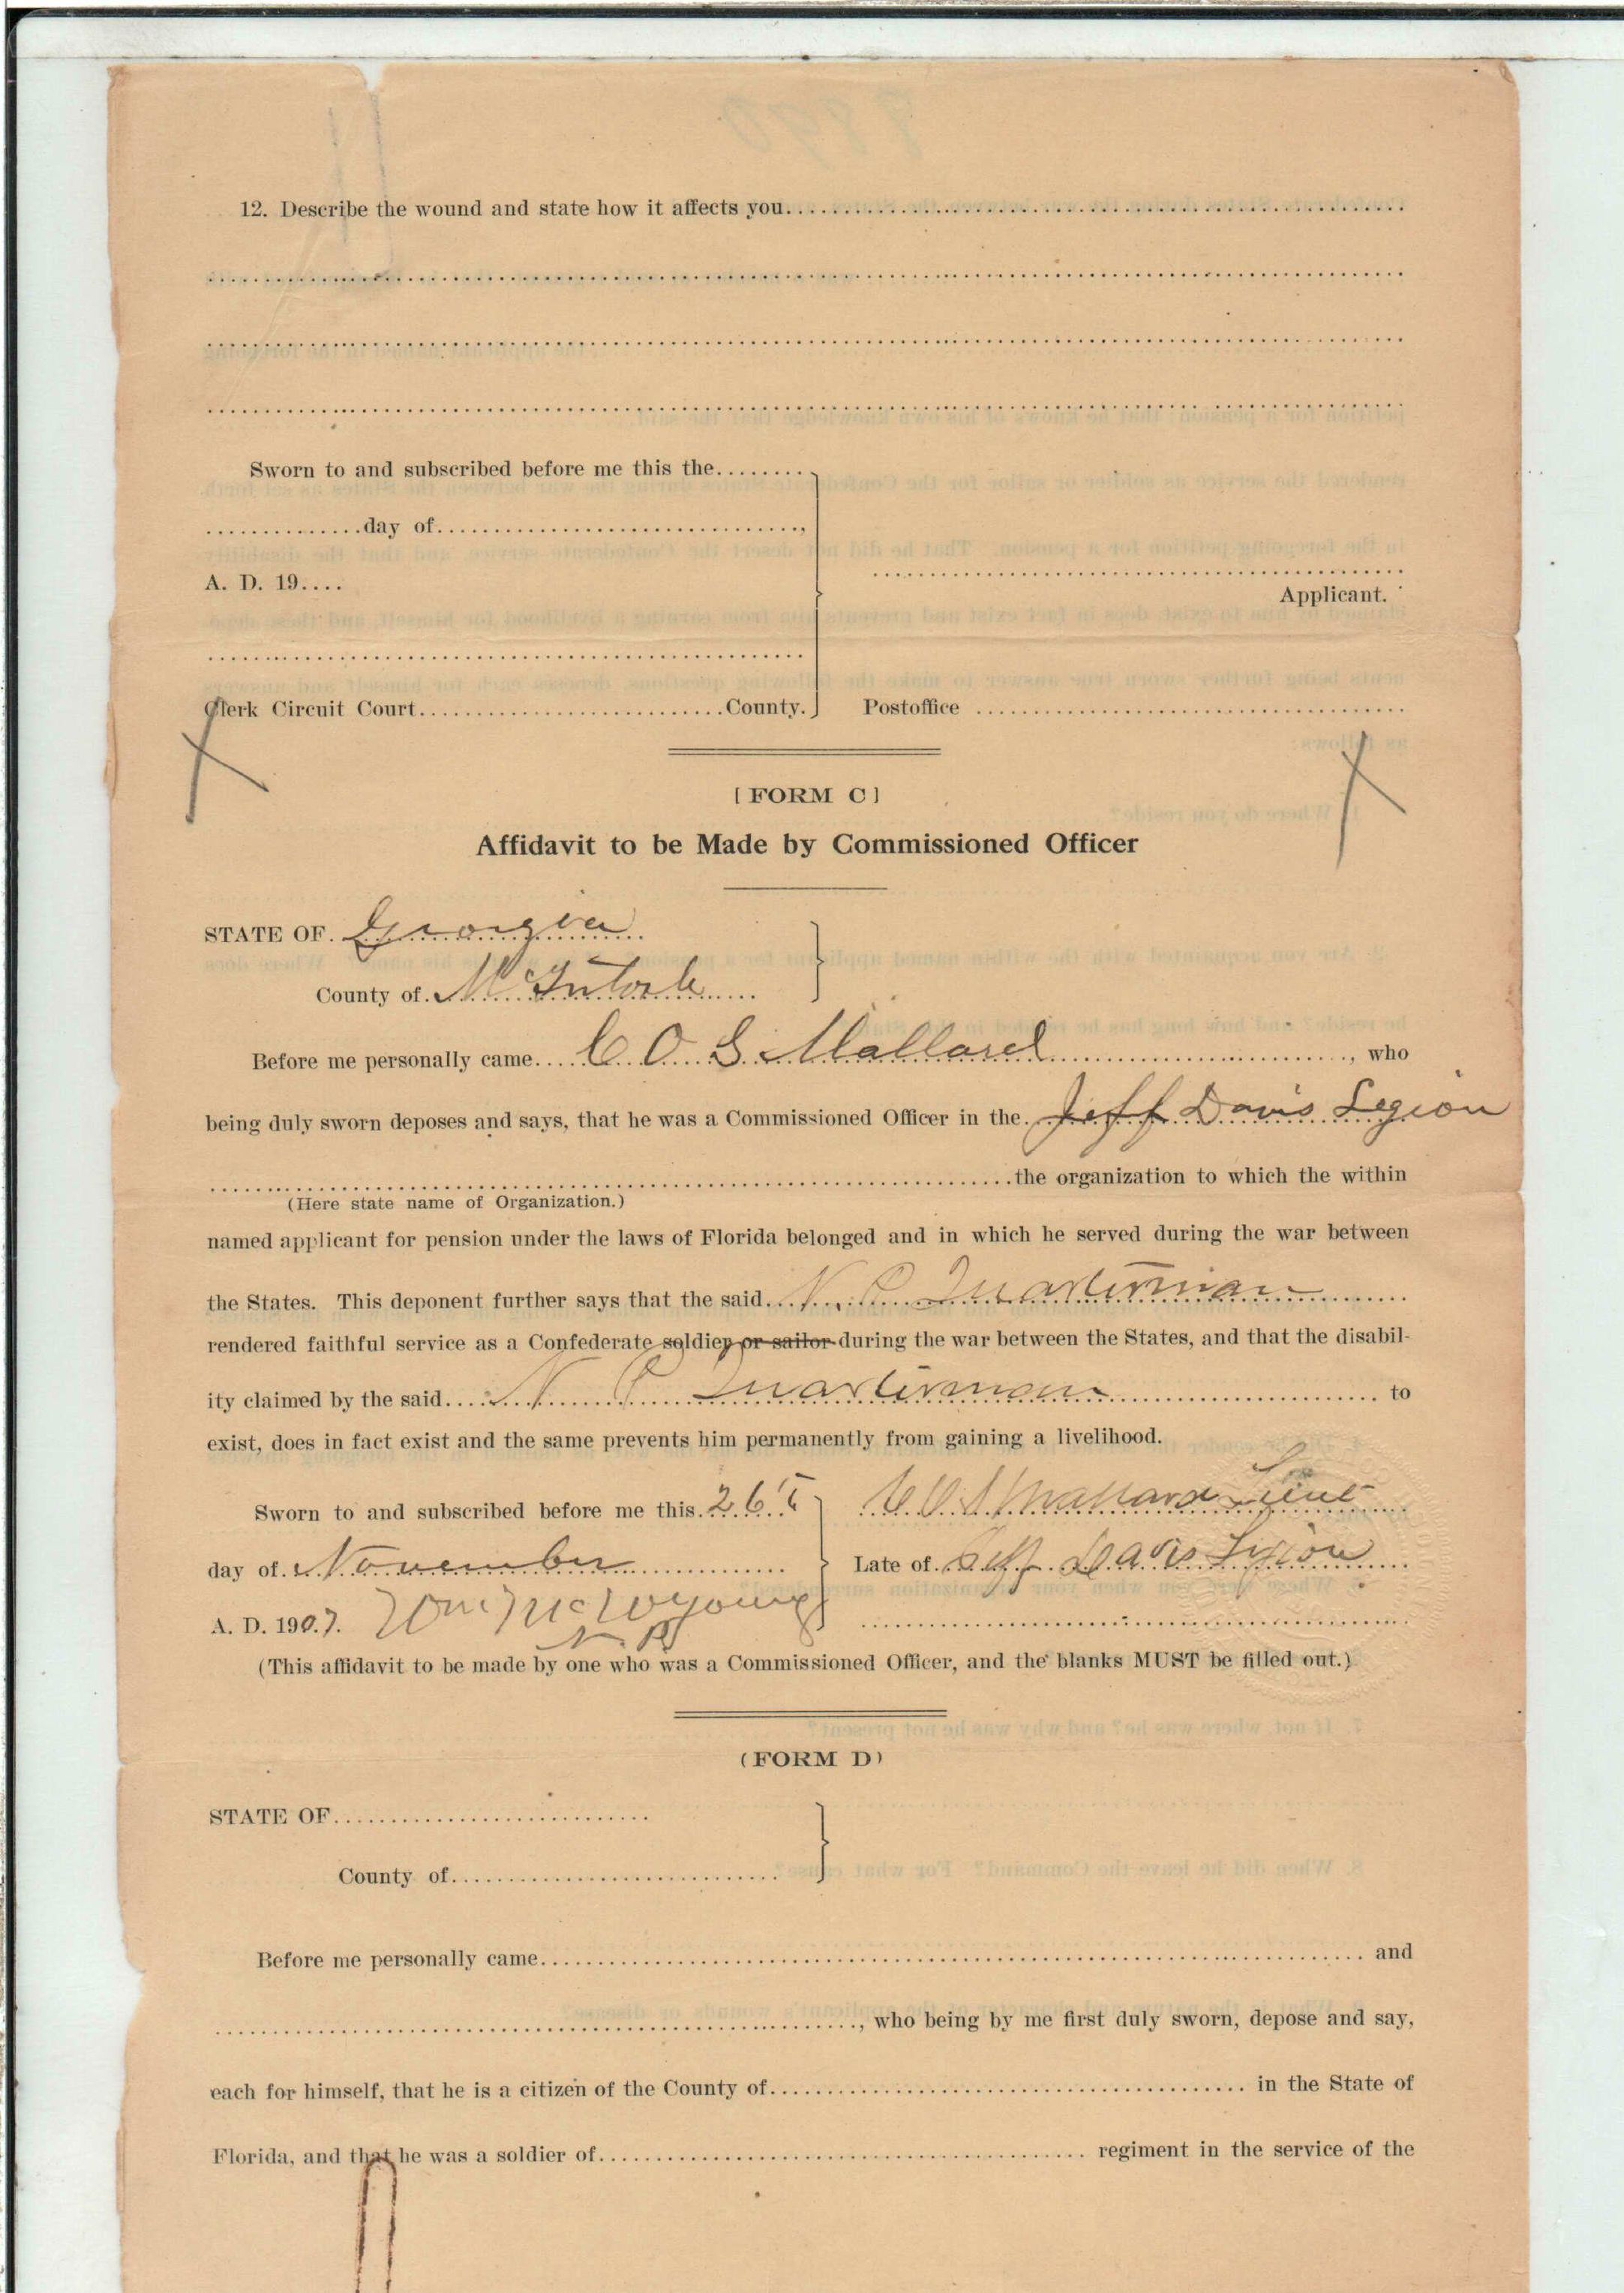 12. Describe the wound and state how it affects you
Sworn to and subscribed before me this the
day of
A. D. 19
Applicant.
Clerk Circuit Court County. Postoffice
[FORM C]
Affidavit to be Made by Commissioned Officer
STATE OF Georgia
County of McIntosh
Before me personally came C O S Mallard, who
being duly sworn deposes and says, that he was a Commissioned Officer in the Jeff Davis Legion
the organization to which the within
(Here state name of Organization.)
named applicant for pension under the laws of Florida belonged and in which he served during the war between
the States. This deponent further says that the said N. P. Quarterman
rendered faithful service as a Confederate soldier or sailor during the war between the States, and that the disabil-
ity claimed by the said N P Quarterman to
exist, does in fact exist and the same prevents him permanently from gaining a livelihood.
Sworn to and subscribed before me this 26th C O S Mallard Lieut
day of November Late of Jeff Davis Legion
A. D. 1907.
(This affidavit to be made by one who was a Commissioned Officer, and the blanks MUST be filled out.)
(FORM D)
STATE OF
County of
Before me personally came and
, who being by me first duly sworn, depose and say,
each for himself, that he is a citizen of the County of in the State of
Florida, and that he was a soldier of regiment in the service of the